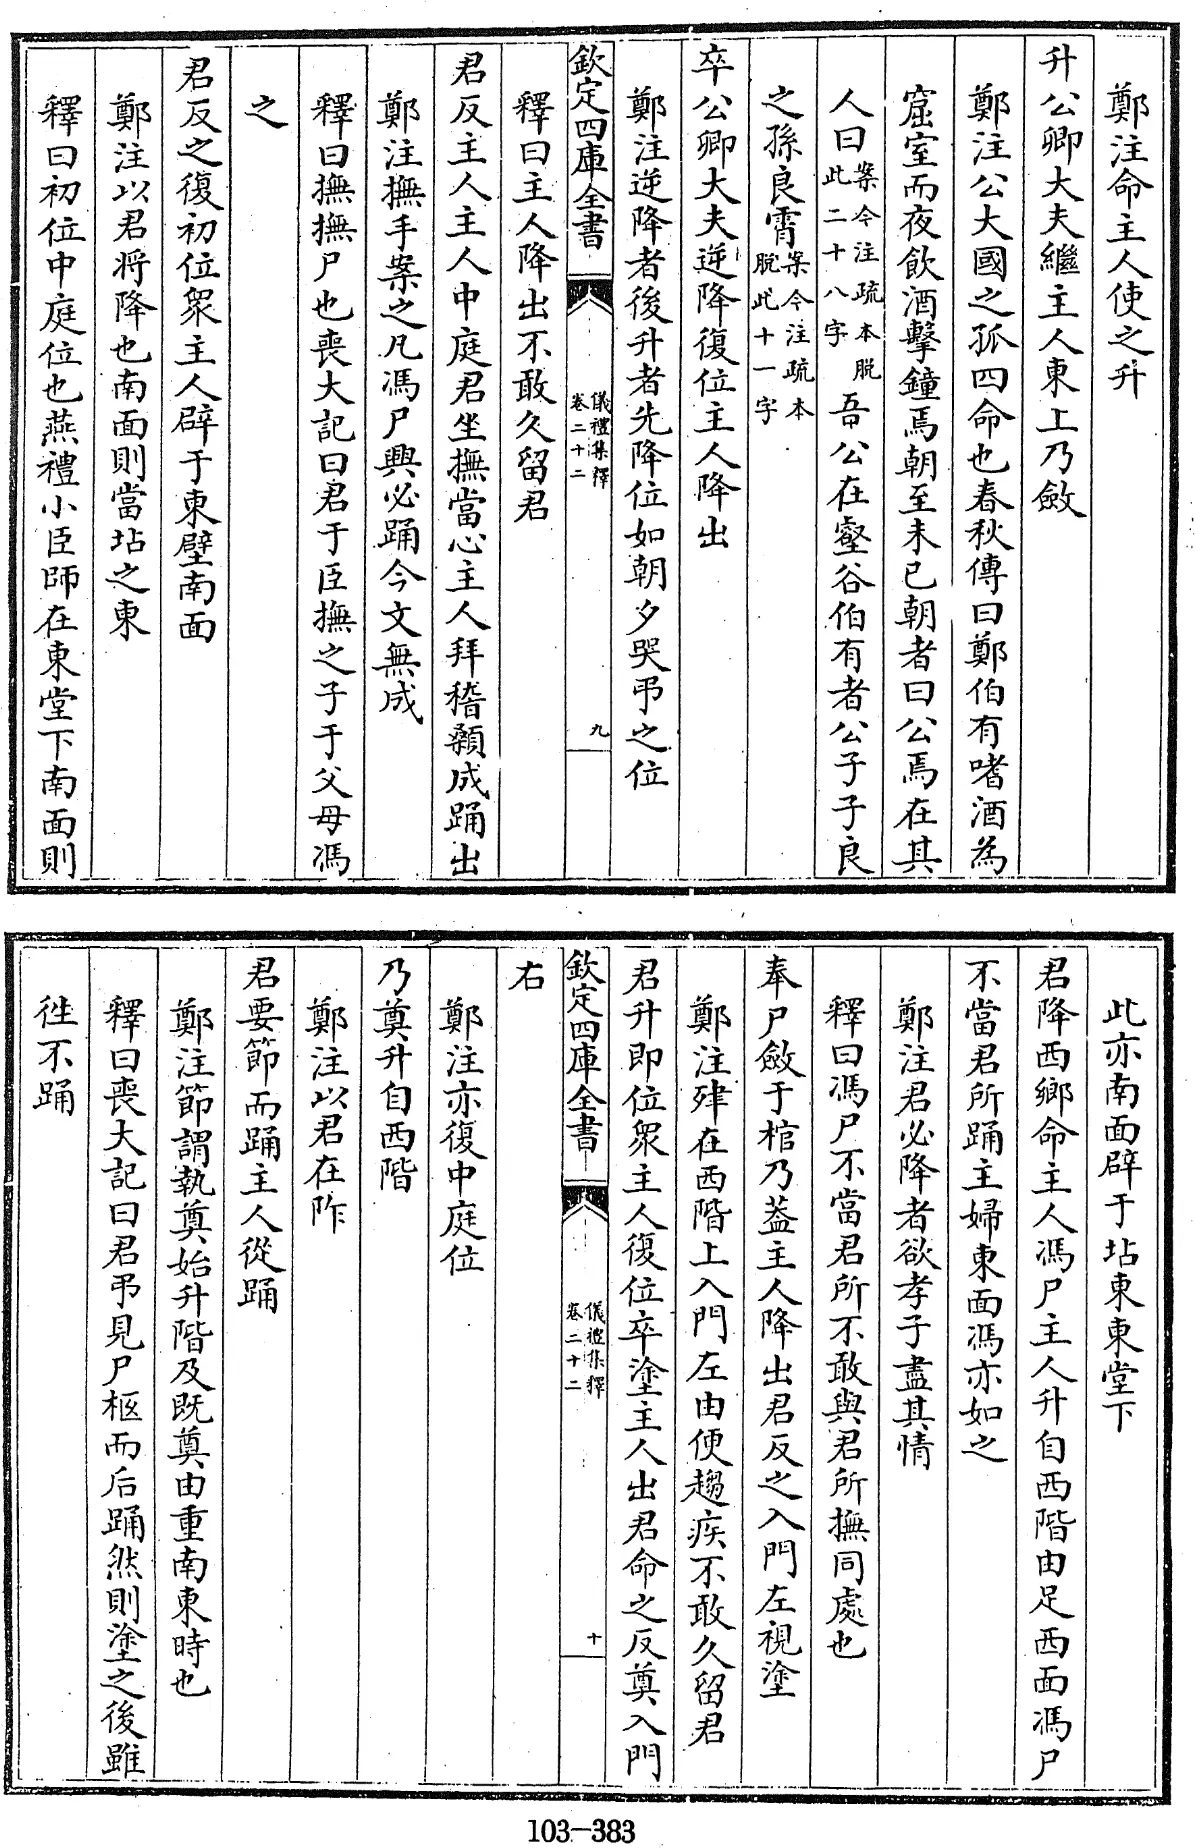 鄭注命主人使之升
升公卿大夫繼主人東上乃斂
鄭注公大國之孤四命也春秋傳曰鄭伯有嗜酒為
窟室而夜飲酒擊鐘焉朝至未已朝者曰公焉在其
人曰案今注疏本脱此二十八字吾公在壑谷伯有者公子子良
之孫良霄案今注疏本脱此十一字
卒公卿大夫逆降復位主人降出
鄭注逆降者後升者先降位如朝夕哭弔之位
欽定四庫全書
儀禮集釋
卷二十二
九
釋曰主人降出不敢久留君
君反主人主人中庭君坐撫當心主人拜稽顙成踊出
鄭注撫手案之凡馮尸興必踊今文無成
釋曰撫撫尸也喪大記曰君于臣撫之子于父母馮
之
君反之復初位衆主人辟于東壁南面
鄭注以君將降也南面則當坫之東
釋曰初位中庭位也燕禮小臣師在東堂下南面則
此亦南面辟于坫東東堂下
君降西鄉命主人馮尸主人升自西階由足西面馮尸
不當君所踊主婦東面馮亦如之
鄭注君必降者欲孝子盡其情
釋曰馮尸不當君所不敢與君所撫同處也
奉尸斂于棺乃蓋主人降出君反之入門左視塗
鄭注肂在西階上入門左由便趨疾不敢久留君
君升即位衆主人復位卒塗主人出君命之反奠入門
欽定四庫全書
儀禮集釋
卷二十二
十
右
鄭注亦復中庭位
乃奠升自西階
鄭注以君在阼
君要節而踊主人從踊
鄭注節謂執奠始升階及既奠由重南東時也
釋曰喪大記曰君弔見尸柩而后踊然則塗之後雖
徃不踊
103-383